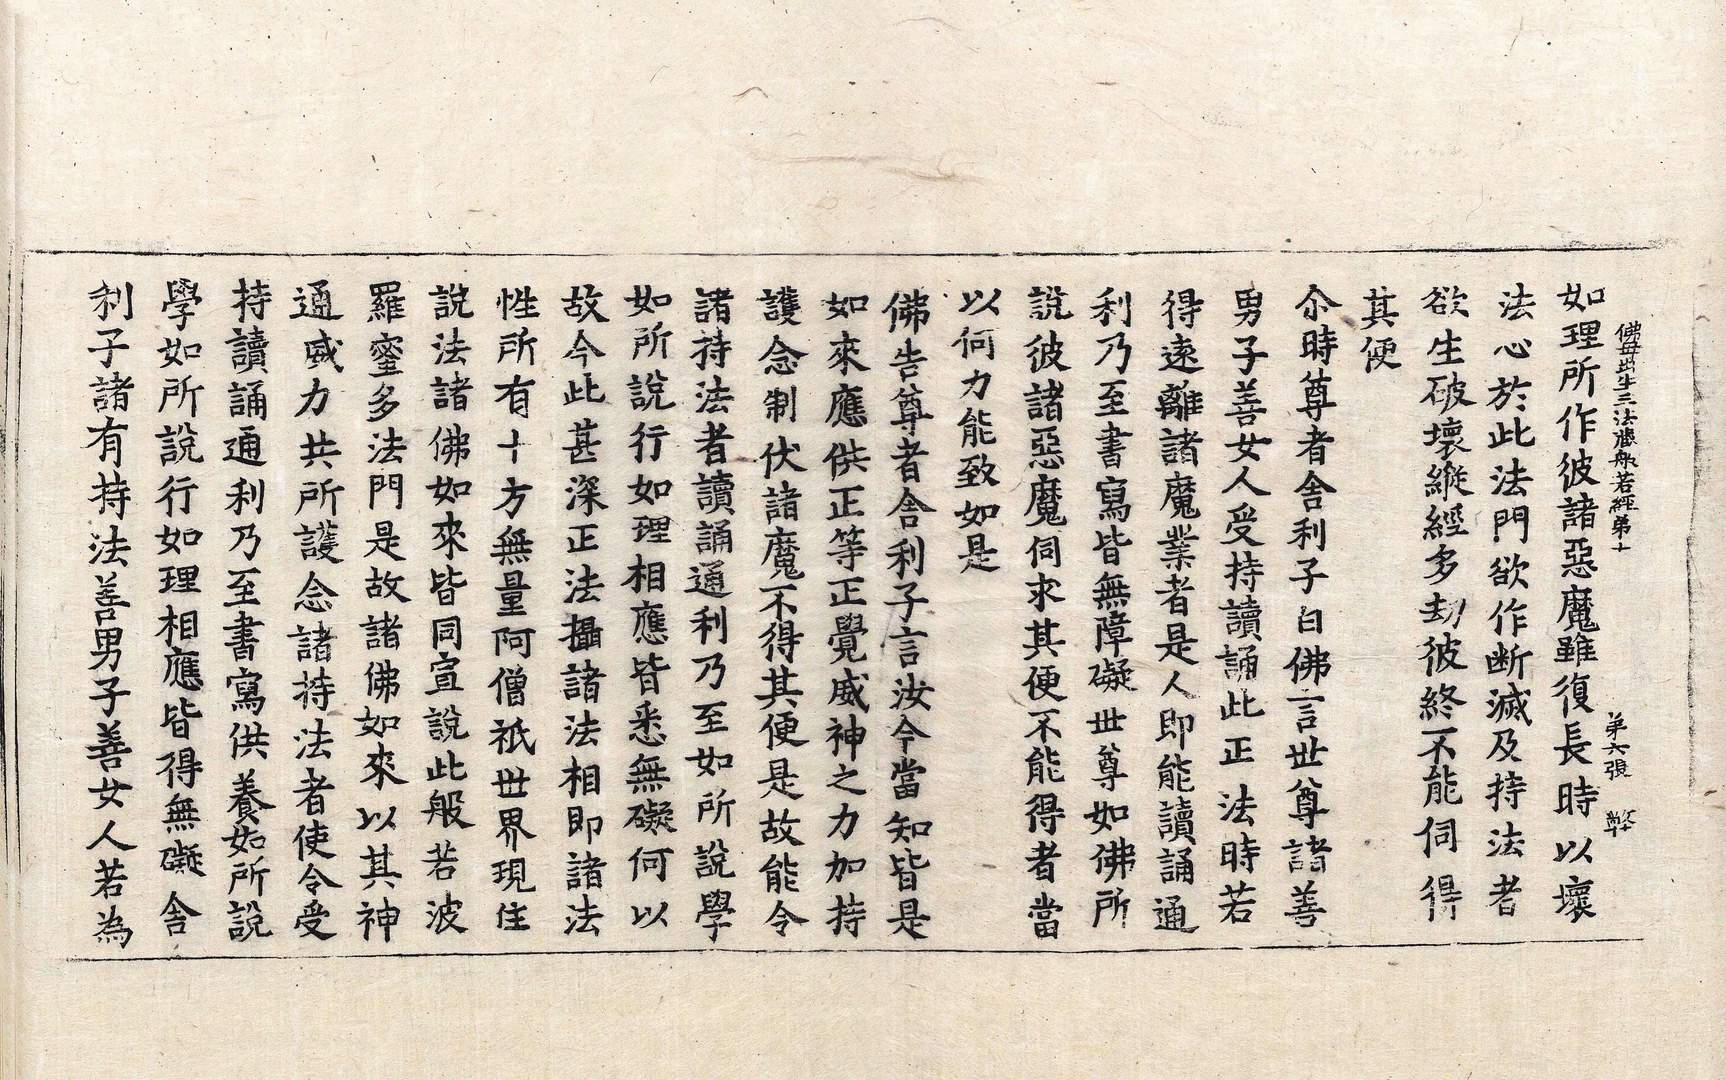 佛母出生三法藏般若經第十　第六張　弊
如理所作彼諸惡魔雖復長時以壞
法心於此法門欲作断滅及持法者
欲生破壞縱經多劫彼終不能伺得
其便
尒時尊者舍利子白佛言世尊諸善
男子善女人受持讀誦此正法時若
得遠離諸魔業者是人即能讀誦通
利乃至書寫皆無障礙世尊如佛所
說彼諸惡魔伺求其便不能得者當
以何力能致如是
佛告尊者舍利子言汝今當知皆是
如來應供正等正覺威神之力加持
護念制伏諸魔不得其便是故能令
諸持法者讀誦通利乃至如所說學
如所說行如理相應皆悉無礙何以
故今此甚深正法攝諸法相即諸法
性所有十方無量阿僧祇世界現住
說法諸佛如來皆同宣說此般若波
羅蜜多法門是故諸佛如來以其神
通威力共所護念諸持法者使令受
持讀誦通利乃至書寫供養如所說
學如所說行如理相應皆得無礙舍
利子諸有持法善男子善女人若為